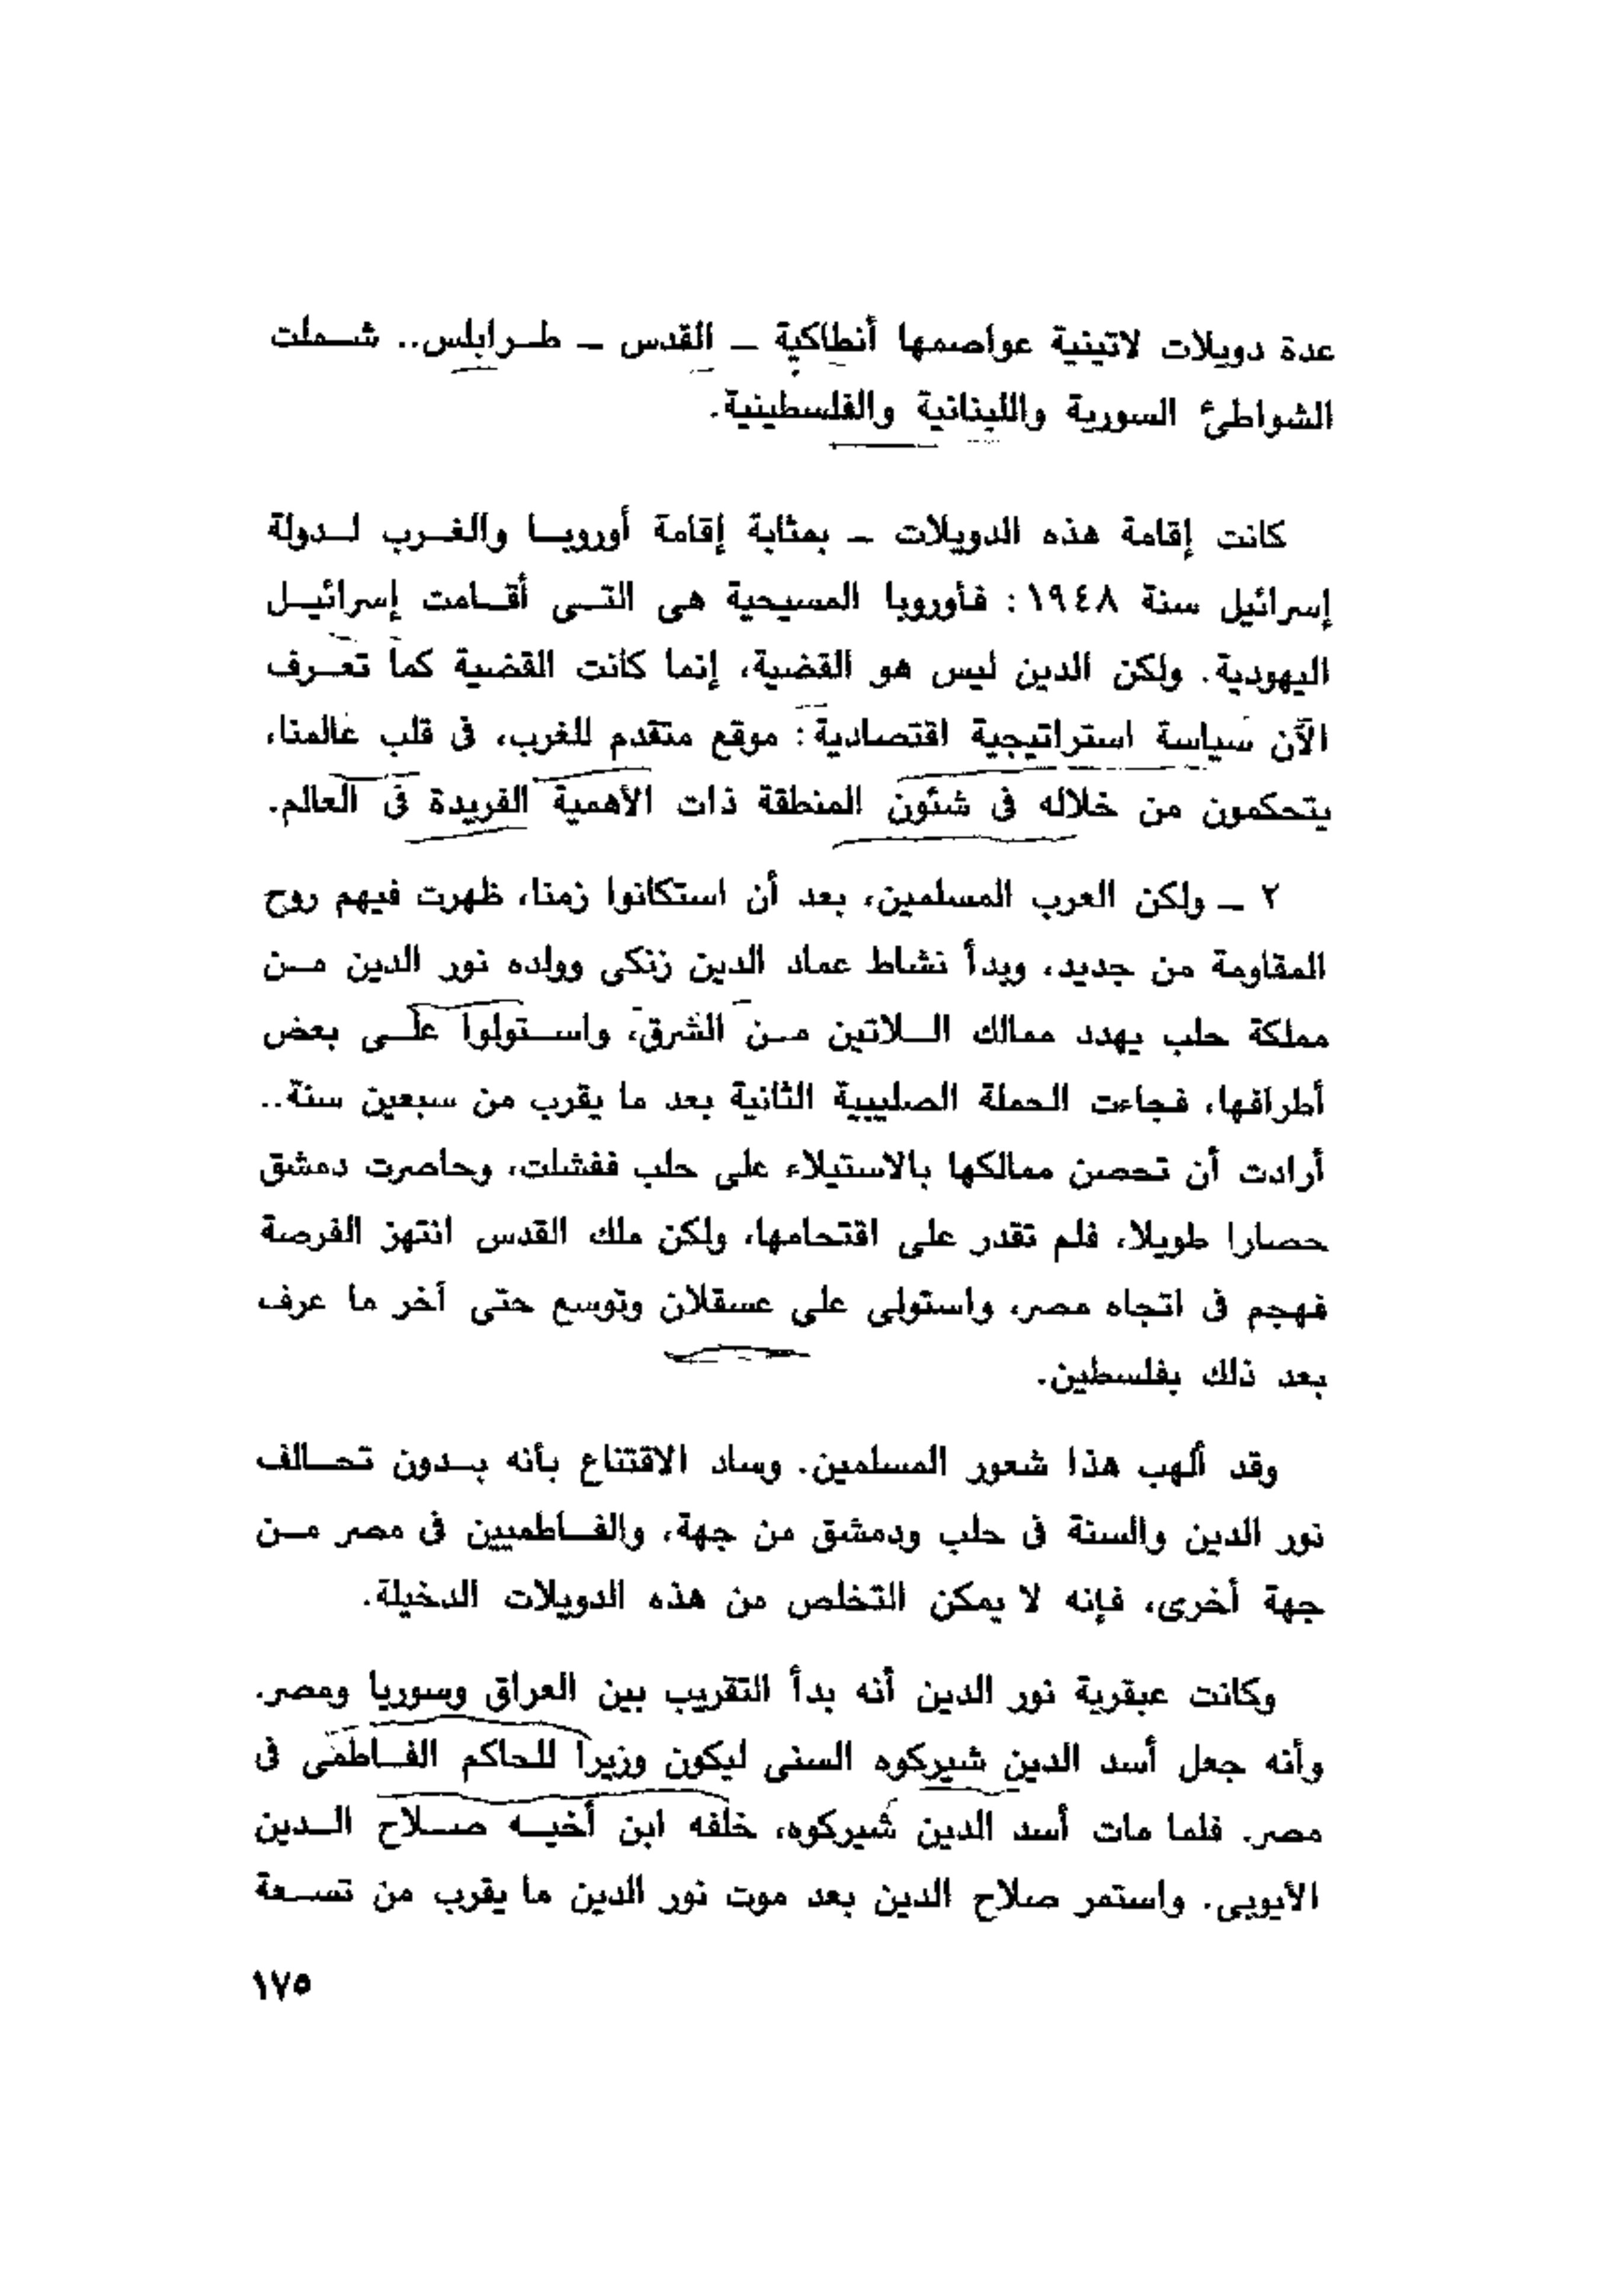 عدة دويلات لاتينية عواصمها أنطاكية – القدس – طرابلس.. شملت
الشواطئ السورية واللبنانية والفلسطينية.
كانت إقامة هذه الدويلات – بمثابة إقامة أوروبا والغرب لدولة
إسرائيل سنة ١٩٤٨: فأوروبا المسيحية هى التى أقامت إسرائيل
اليهودية. ولكن الدين ليس هو القضية، إنما كانت القضية كما تعرف
الآن سياسة استراتيجية اقتصادية: موقع متقدم للغرب، فى قلب عالمنا،
يتحكمون من خلاله فى شئون المنطقة ذات الأهمية الفريدة فى العالم.
٢ – ولكن العرب المسلمين، بعد أن استكانوا زمنا، ظهرت فيهم روح
المقاومة من جديد، وبدأ نشاط عماد الدين زنكى وولده نور الدين من
مملكة حلب يهدد ممالك اللاتين من الشرق، واستولوا على بعض
أطرافها، فجاءت الحملة الصليبية الثانية بعد ما يقرب من سبعين سنة..
أرادت أن تحصن ممالكها بالاستيلاء على حلب ففشلت، وحاصرت دمشق
حصارا طويلا، فلم تقدر على اقتحامها، ولكن ملك القدس انتهز الفرصة
فهجم فى اتجاه مصر، واستولى على عسقلان وتوسع حتى آخر ما عرف
بعد ذلك بفلسطين.
وقد ألهب هذا شعور المسلمين. وساد الاقتناع بأنه بدون تحالف
نور الدين والسنة فى حلب ودمشق من جهة، والفاطميين فى مصر من
جهة أخرى، فإنه لا يمكن التخلص من هذه الدويلات الدخيلة.
وكانت عبقرية نور الدين أنه بدأ التقريب بين العراق وسوريا ومصر.
وأنه جعل أسد الدين شيركوه السنى ليكون وزيرا للحاكم الفاطمى فى
مصر. فلما مات أسد الدين شيركوه، خلفه ابن أخيه صلاح الدين
الأيوبى. واستمر صلاح الدين بعد موت نور الدين ما يقرب من تسعة
١٧٥